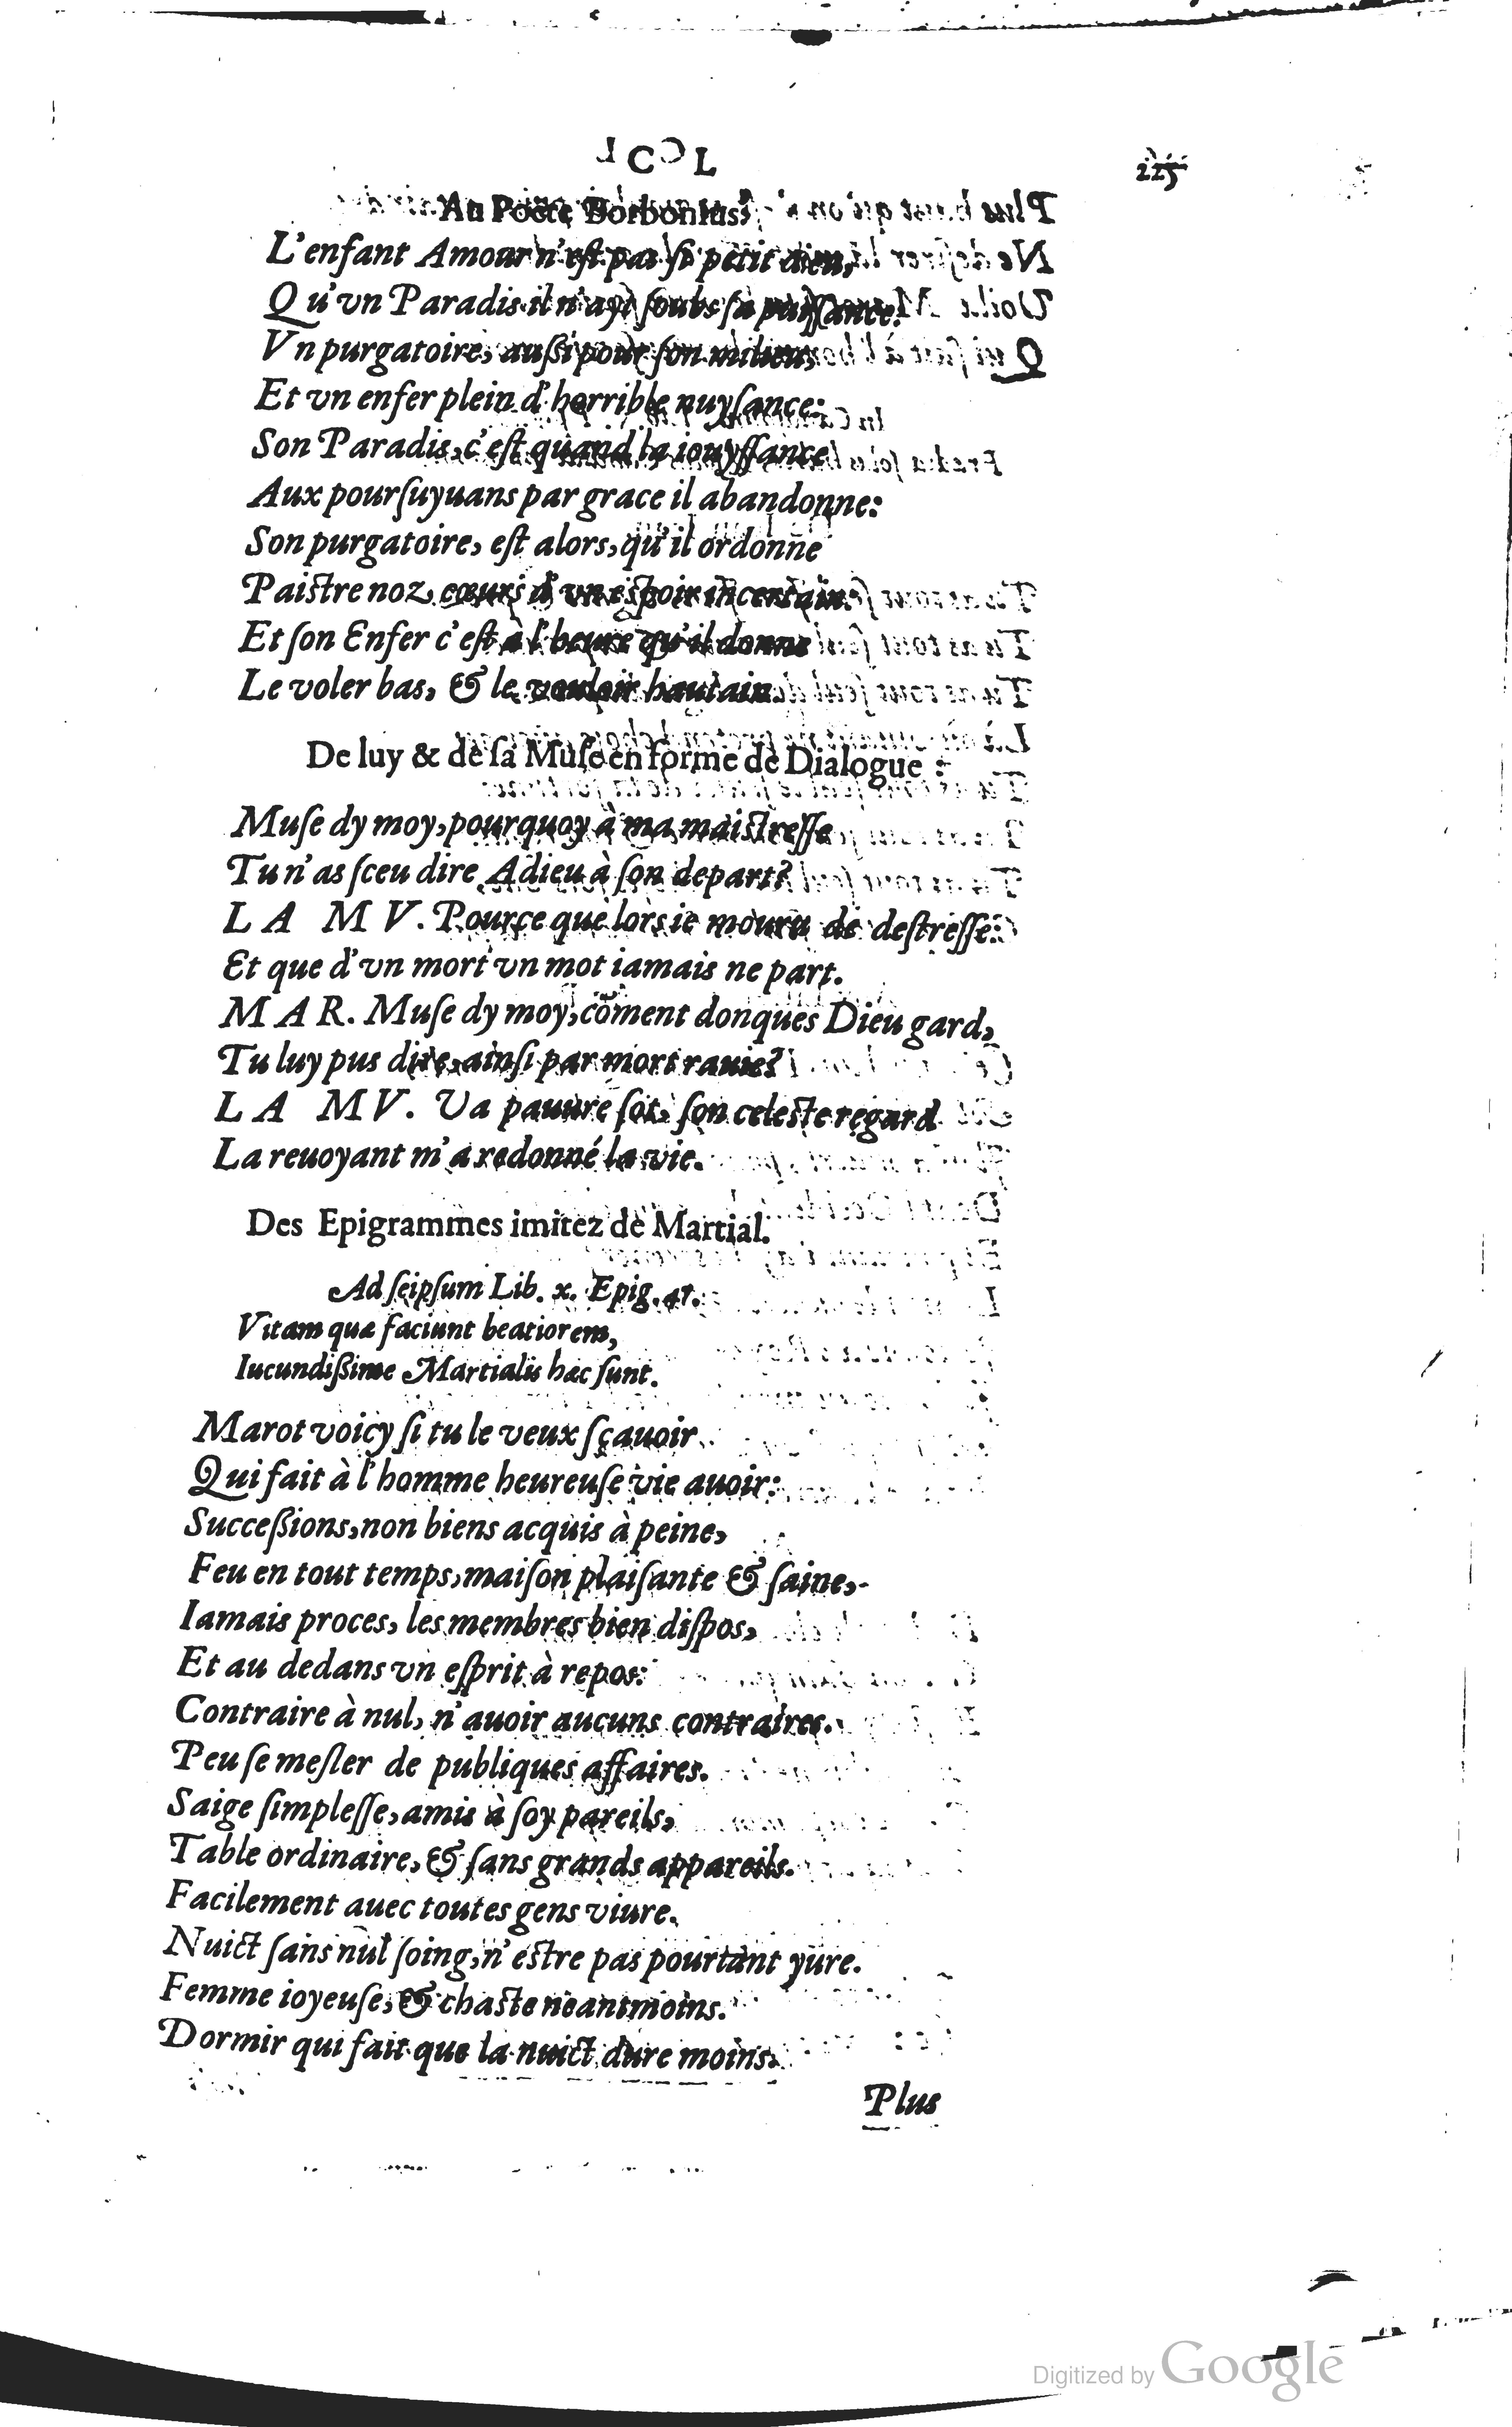 225
Au Poëte Borbonius.
L'enfant Amour n'est pas si petit dieu,
Qu'vn Paradis il n'ayt soubs sa puissance:
Vn purgatoire, aussi pour son milieu,
Et vn enfer plein d'horrible nuysance:
Son Paradis, c'est quand la iouyssance
Aux poursuyuans par grace il abandonne:
Son purgatoire, est alors, qu'il ordonne
Paistre noz cœurs d'vn espoir incertain:
Et son Enfer c'est à l'heure qu'il donne
Le voler bas, & le vouloir hautain.
De luy & de sa Muse en forme de Dialogue.
Muse dy moy, pourquoy à ma maistresse
Tu n'as sceu dire Adieu à son depart?
LA MV. Pource que lors ie mouru de destresse:
Et que d'vn mort vn mot iamais ne part.
MAR. Muse dy moy, cōment donques Dieu gard,
Tu luy pus dire, ainsi par mort rauie?
LA MV. Va pauure sot, son celeste regard
La reuoyant m'a redonné la vie.
Des Epigrammes imitez de Martial.
Ad seipsum Lib. x. Epig. 47.
Vitam quæ faciunt beatiorem,
Iucundissime Martialis hæc sunt.
Marot voicy si tu le veux sçauoir
Qui fait à l'homme heureuse vie auoir:
Successions, non biens acquis à peine,
Feu en tout temps, maison plaisante & saine,
Iamais proces, les membres bien dispos,
Et au dedans vn esprit à repos:
Contraire à nul, n'auoir aucuns contraires.
Peu se mesler de publiques affaires.
Saige simplesse, amis à soy pareils,
Table ordinaire, & sans grands appareils.
Facilement auec toutes gens viure.
Nuict sans nul soing, n'estre pas pourtant yure.
Femme ioyeuse, & chaste neantmoins.
Dormir qui fait que la nuict dure moins.
Plus
Digitized by Google